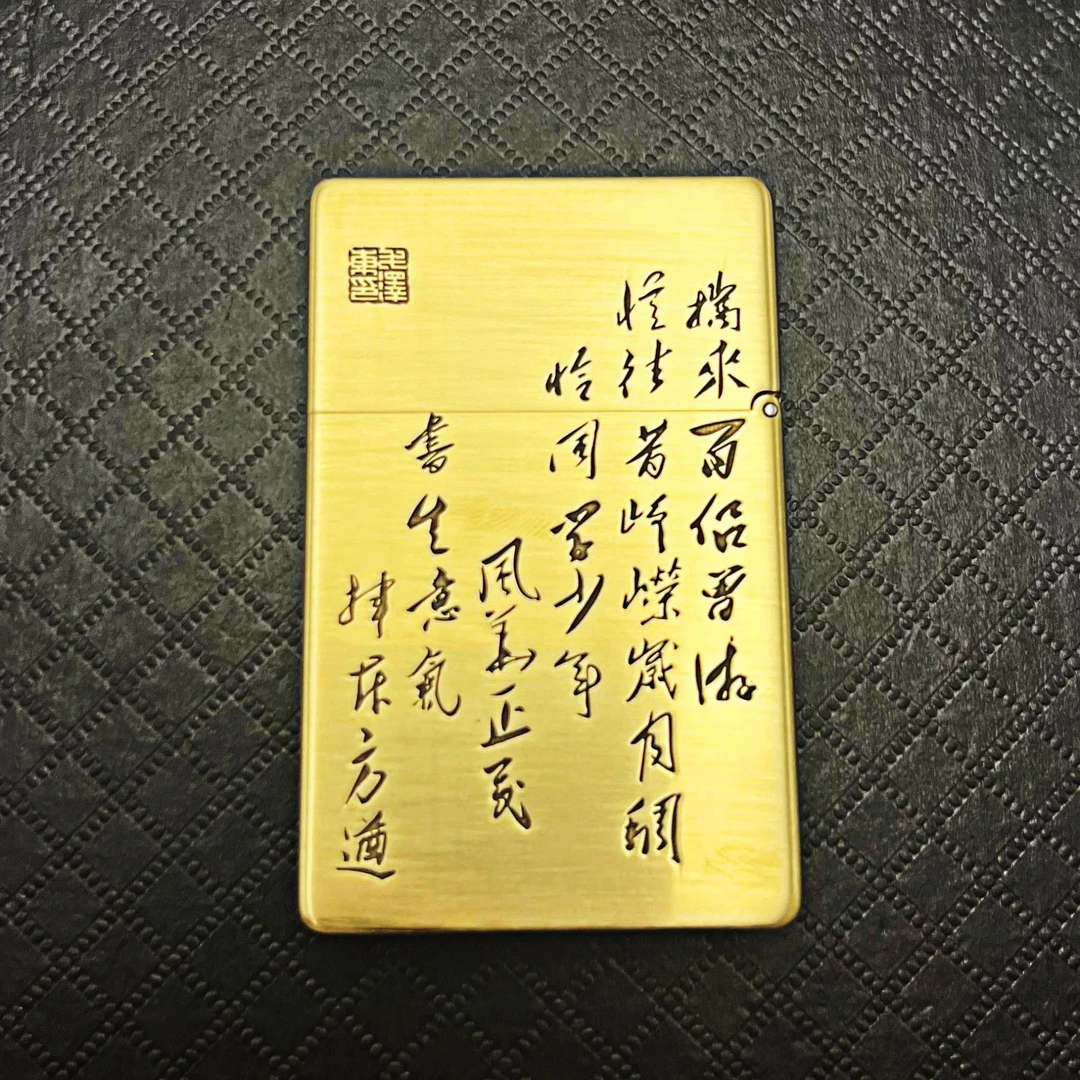 携來百侣曾游
憶往昔峥嶸歲月稠
恰同學少年
風華正茂
書生意氣
揮斥方遒
毛澤東印